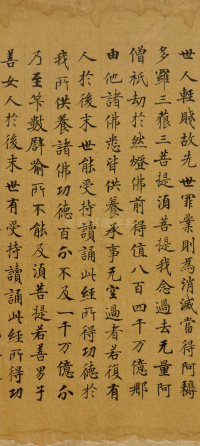 世人輕賤故先世罪業則為消滅當得阿耨
多羅三藐三菩提須菩提我念過去無量阿
僧祇劫於然燈佛前得值八百四千万億那
由他諸佛悉皆供養承事无空過者若復有
人於後末世能受持讀誦此經所得功德於
我所供養諸佛功德百分不及一千万億分
乃至筭數譬喻所不能及須菩提若善男子
善女人於後末世有受持讀誦此經所得功